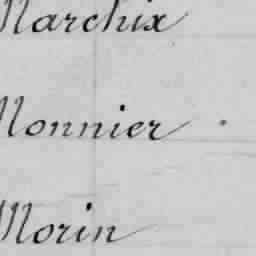 Marchix
Monnier
Morin